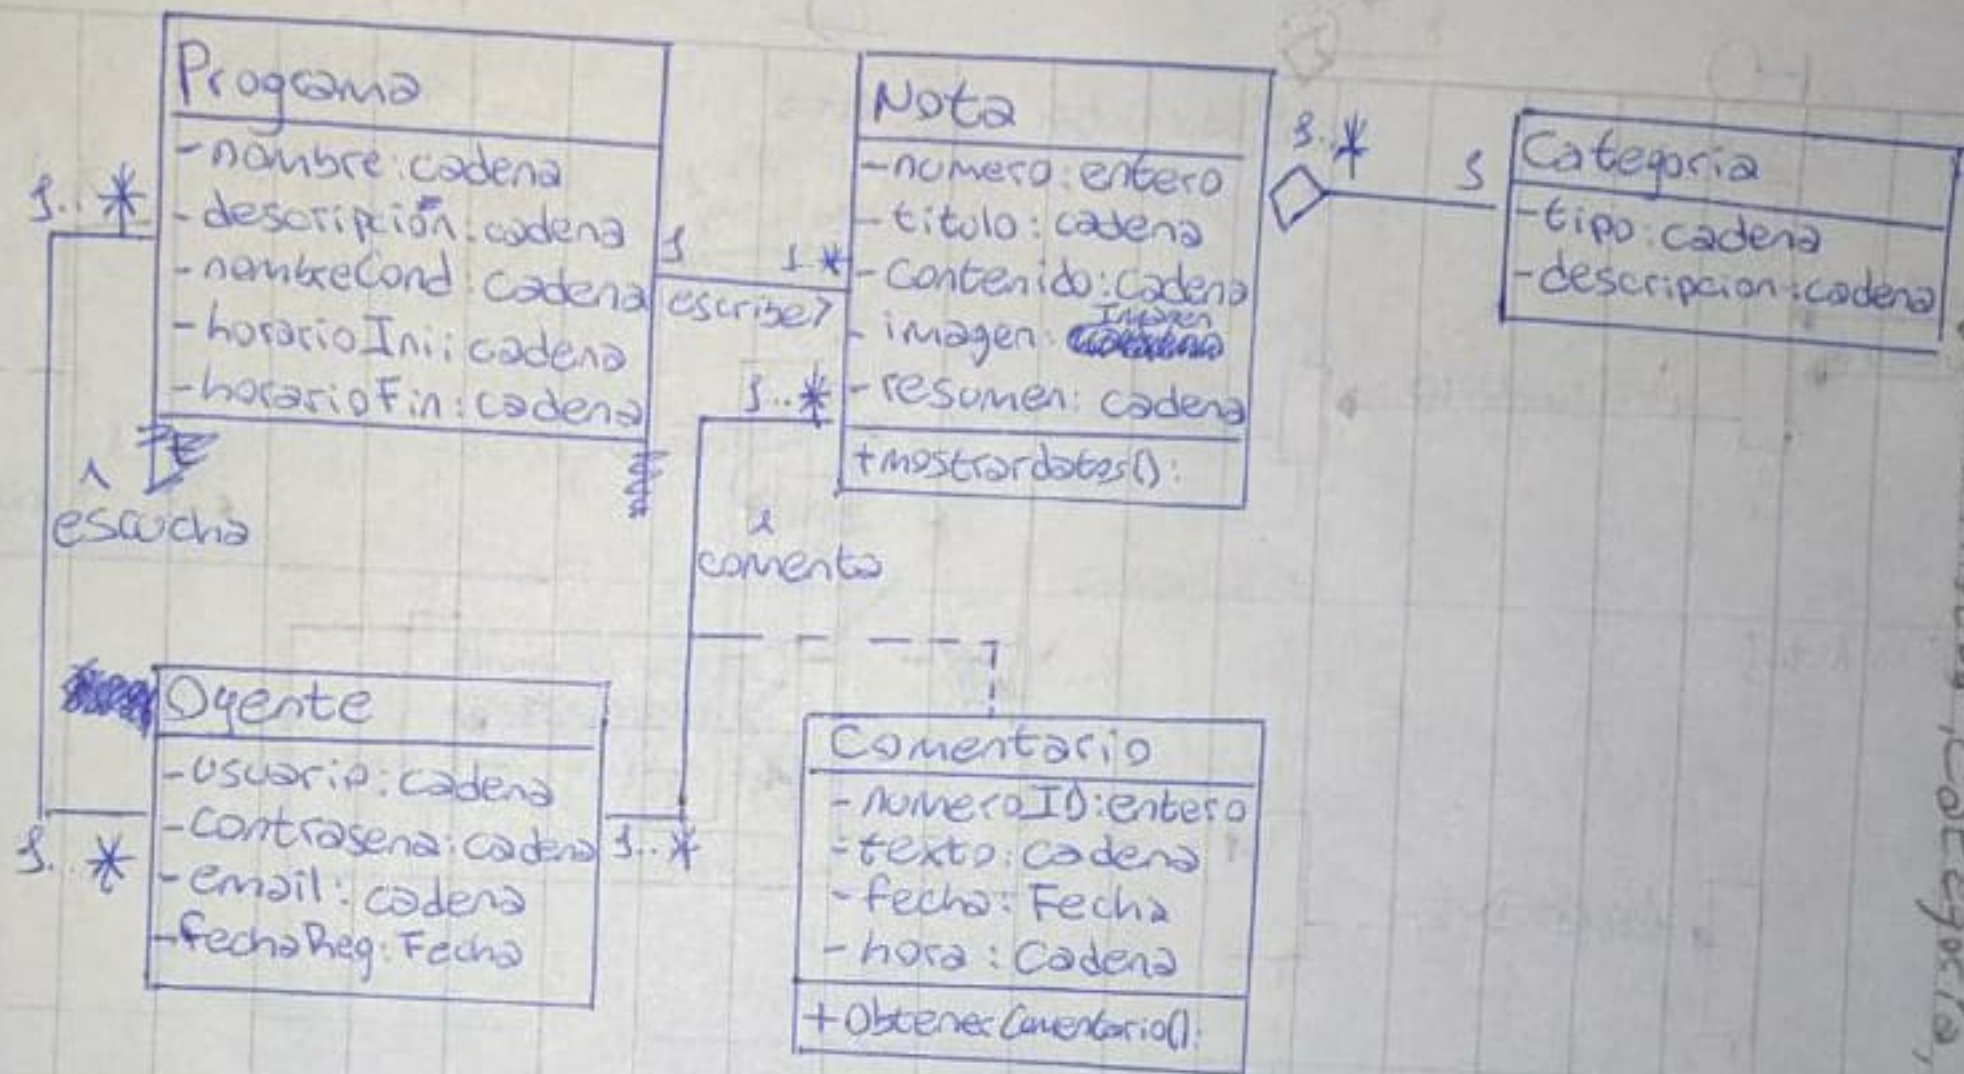 Programa
-nombre:cadena
-descripción:cadena
-nombreCond:cadena
-horarioIni:cadena
-horarioFin:cadena
1..*
^
escucha
1
1.*
escribe>
Nota
-numero:entero
-titulo:cadena
-contenido:cadena
-imagen: Imagen
-resumen: cadena
+mostrardatos():
1..*
1
Categoria
-tipo:cadena
-descripcion:cadena
1..*
^
comenta
Oyente
-usuario:cadena
-contrasena:cadena
-email: cadena
-fechaReg:Fecha
1..*
1..*
Comentario
-numeroID:entero
-texto:cadena
-fecha:Fecha
-hora:Cadena
+ObtenerComentario():